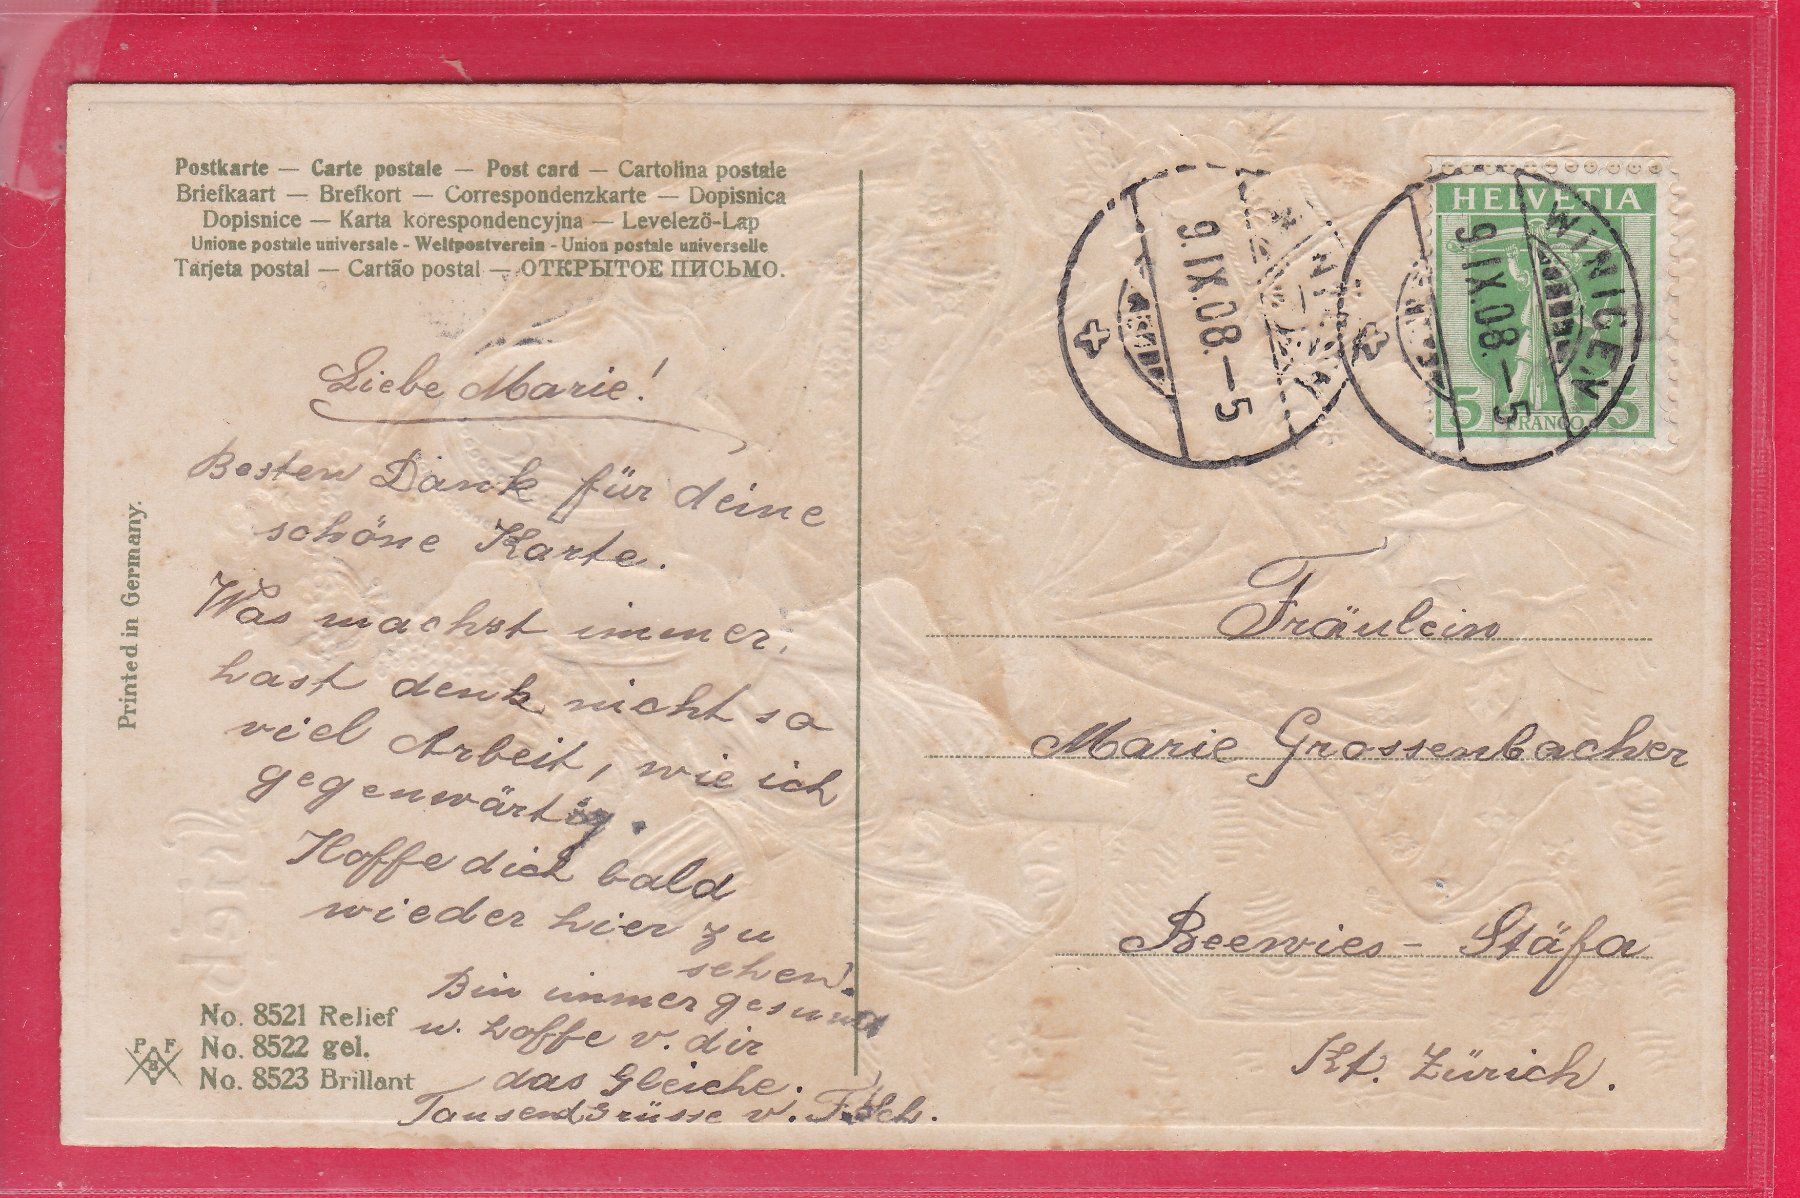 Postkarte — Carte postale — Post card — Cartolina postale
Briefkaart — Brefkort — Correspondenzkarte — Dopisnica
Dopisnice — Karta korespondencyjna — Levelező-Lap
Unione postale universale - Weltpostverein - Union postale universelle
Tarjeta postal — Cartão postal — ОТКРЫТОЕ ПИСЬМО.
Liebe Marie!
Besten Dank für deine
schöne Karte.
Was machst immer,
hast denk nicht so
viel Arbeit, wie ich
gegenwärtig.
Hoffe dich bald
wieder hier zu
sehen.
Bin immer gesund
u. hoffe v. dir
das Gleiche.
Tausend Grüsse v. F. Sch.
Printed in Germany.
No. 8521 Relief
No. 8522 gel.
No. 8523 Brillant
P F
B
HELVETIA
5 FRANCO 5
WINIGEN
9.IX.08.—5
WINIGEN
9.IX.08.—5
Fräulein
Marie Grossenbacher
Beewies - Stäfa
Kt. Zürich.